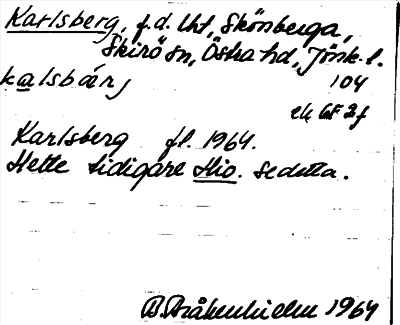 Karlsberg, f.d. lht, Skönberga,
Skirö sn, Östra hd, Jönk. l.
kalsbärj 104
ek 6F 2f
Karlsberg fl. 1964.
Hette tidigare Mio. se detta.
B. Bråkenhielm 1964